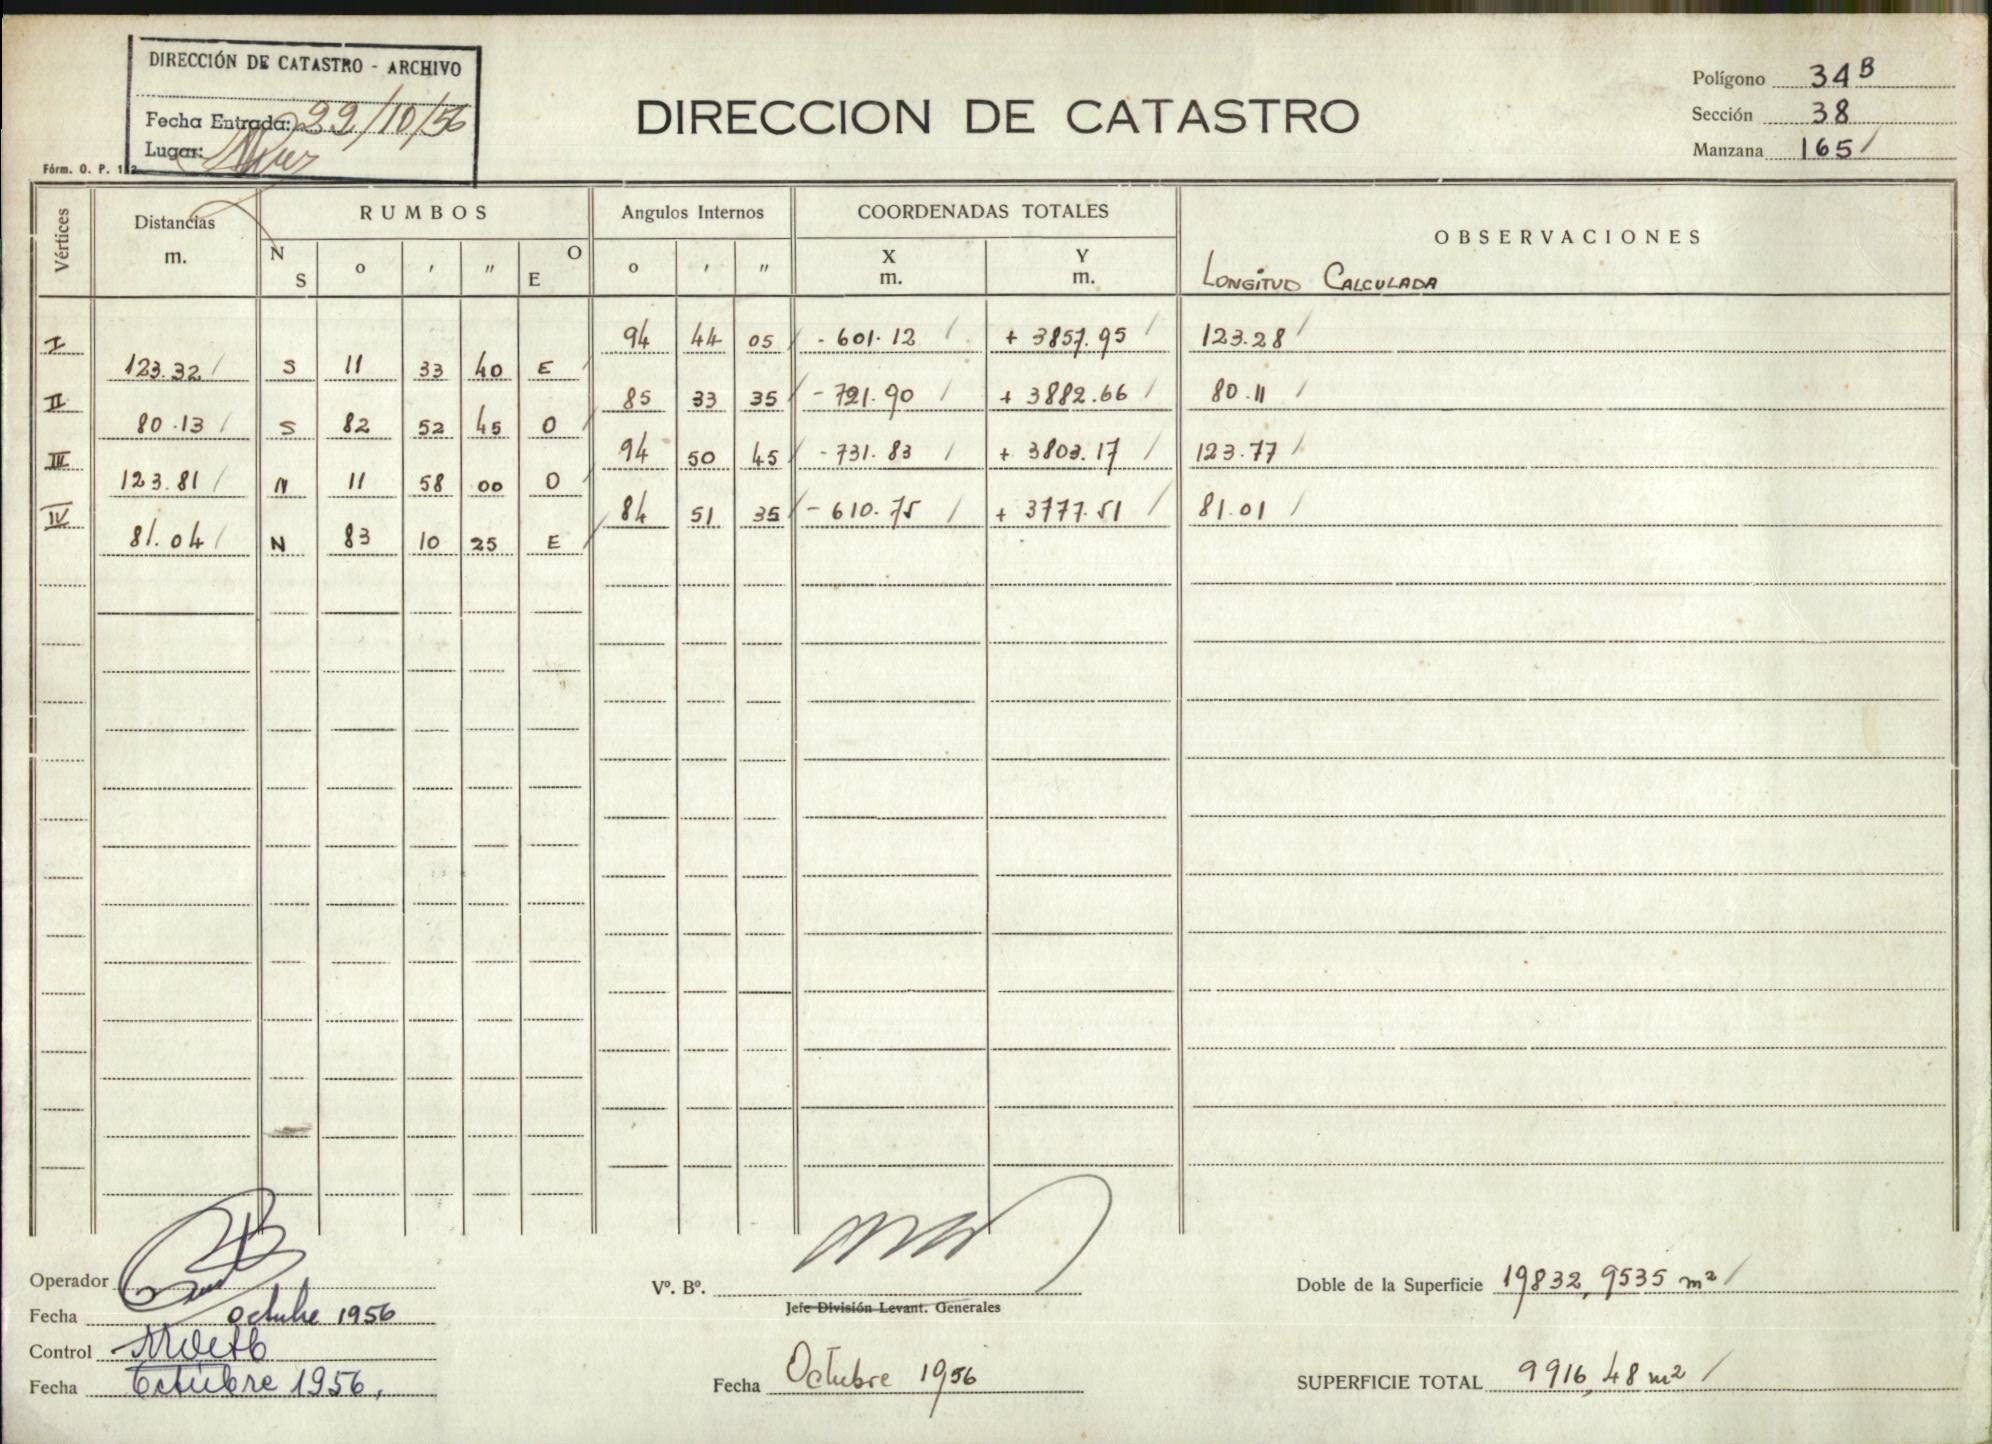 DIRECCIÓN DE CATASTRO - ARCHIVO
Fecha Entrada: 22/10/56
Lugar:
Fórm. O. P. 1
DIRECCION DE CATASTRO
Polígono 34 B
Sección 38
Manzana 165 /
Vértices Distancias m. RUMBOS Angulos Internos COORDENADAS TOTALES OBSERVACIONES
N S o ' " O E o ' " X m. Y m. LONGITUD CALCULADA
I 94 44 05 / - 601.12 / + 3857.95 / 123.28 /
123.32 / S 11 33 40 E
II 85 33 35 / - 721.90 / + 3882.66 / 80.11 /
80.13 / S 82 52 45 O /
III 94 50 45 / - 731.83 / + 3803.17 / 123.77 /
123.81 / N 11 58 00 O /
IV 84 51 35 / - 610.75 / + 3777.51 / 81.01 /
81.04 / N 83 10 25 E /
Operador
Fecha octubre 1956
Control
Fecha Octubre 1956.
Vº. Bº.
Jefe División Levant. Generales
Fecha Octubre 1956
Doble de la Superficie 19832,9535 m² /
SUPERFICIE TOTAL 9916,48 m² /